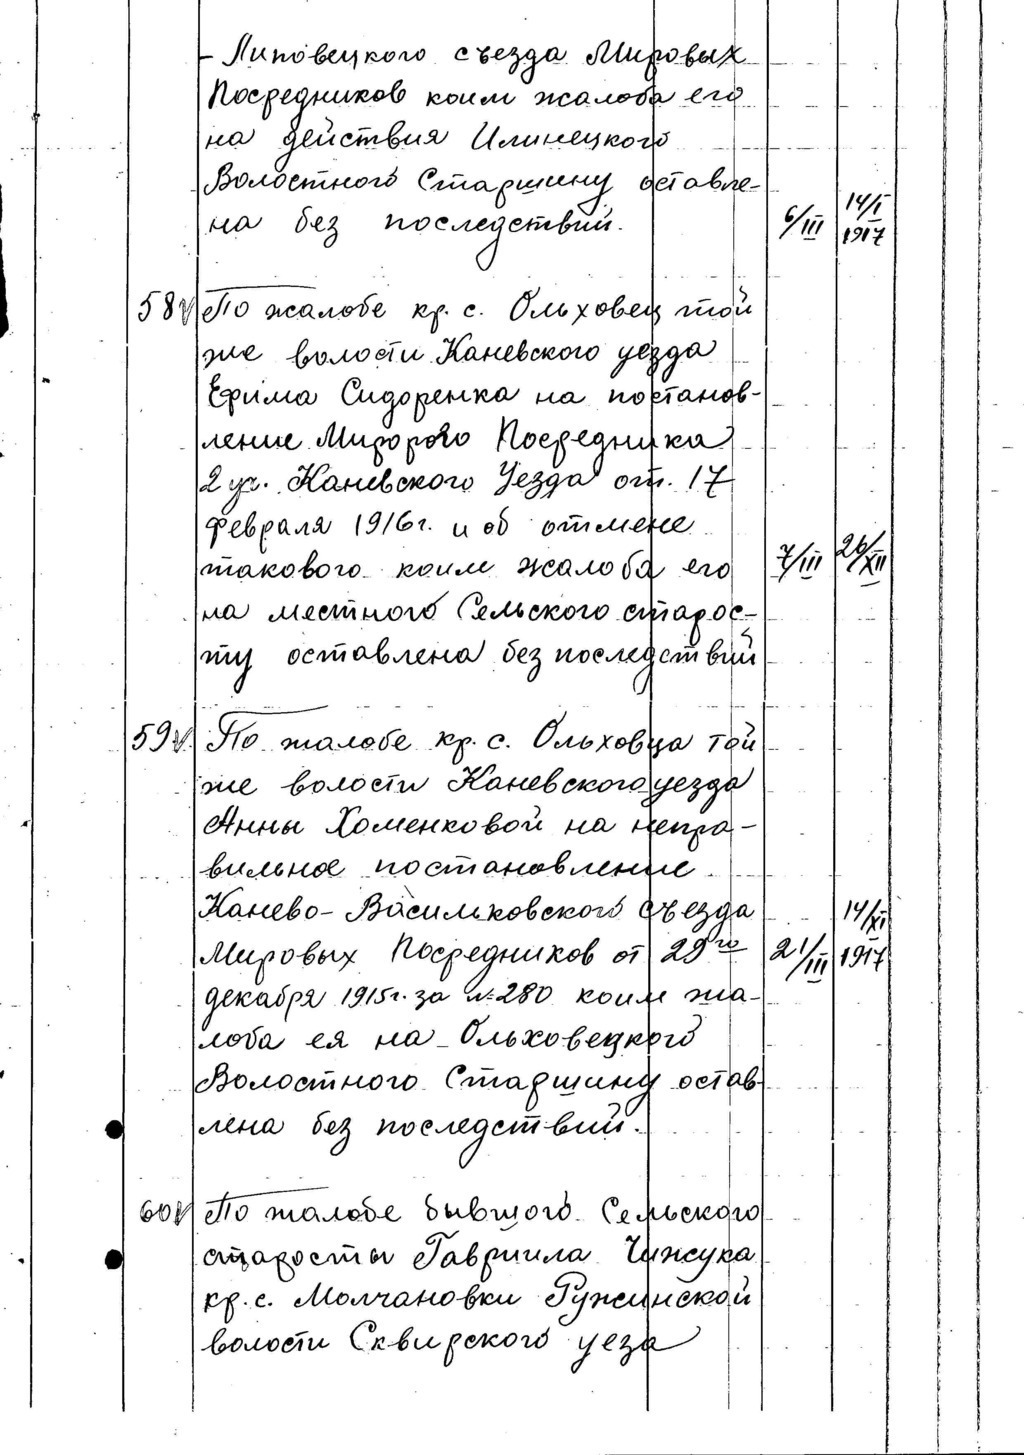 - Липовецкого съезда Мировых
Посредников коим жалоба его
на действия Илинецкого
Волостного Старшину оставле-
на без последствий.
6/III 14/I 1917
58 По жалобе кр. с. Ольховец той
же волости Каневского уезда
Ефима Сидоренка на постанов-
ление Миророго Посредника
2 уч. Каневского Уезда от. 17
февраля 1916 г. и об отмене
такового коим жалоба его
7/III 26/XII
на местного Сельского старос-
ту оставлена без последствий
59 По жалобе кр. с. Ольховца той
же волости Каневского уезда
Анны Хоменковой на непра-
вильное постановление
Канево-Васильковского съезда
Мировых Посредников от 29го
21/III 14/XI 1917
декабря 1915 г. за №280 коим жа-
лоба ея на Ольховецкого
Волостного Старшину остав-
лена без последствий.
60 По жалобе бывшого Сельского
старосты Гавриила Чижука
кр. с. Молчановки Ружинской
волости Сквирского уеза